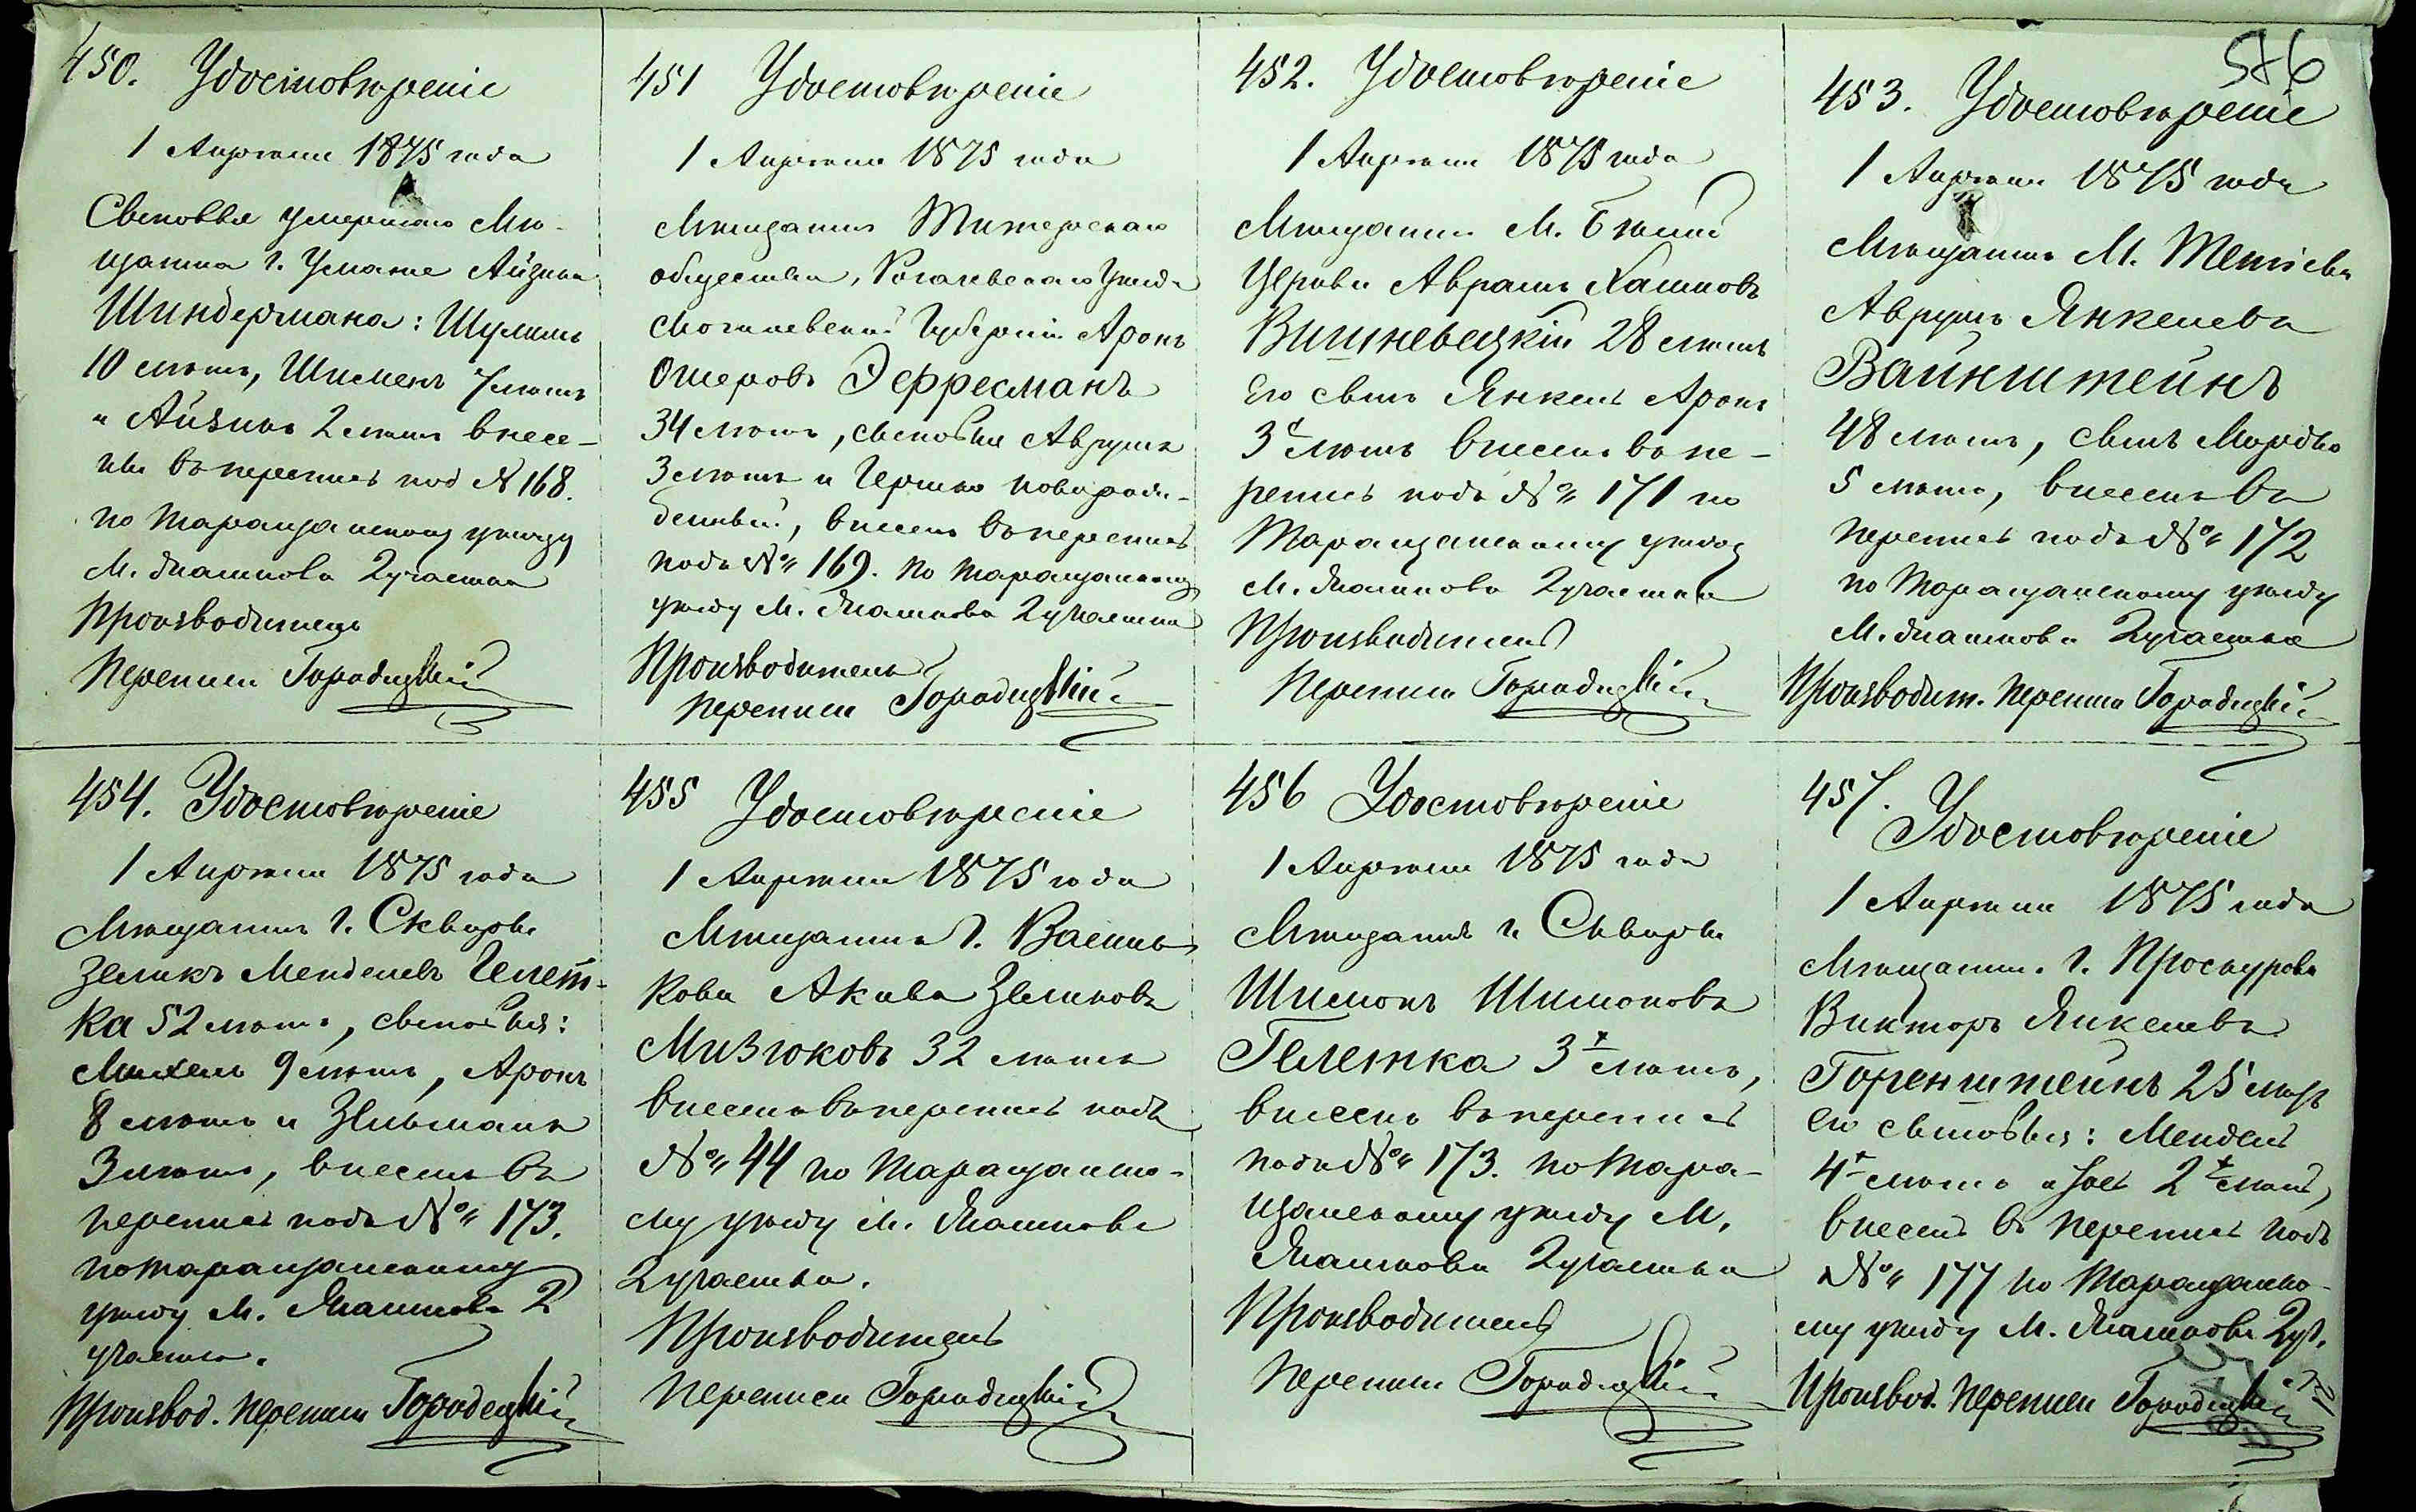 586
450. Удостовѣреніе
1 Апрѣля 1875 года
Сыновья умершаго Мѣ-
щанина г. Уманя Айзика
Шиндермана: Шулимъ
10 лѣтъ, Шименъ 7 лѣтъ
и Айзикъ 2 лѣтъ внесе-
ны въ перепись под № 168.
по Таращанскому уѣзду
М. Пятигоръ 2 участка
Производитель
Переписи Городецкій
451 Удостовѣреніе
1 Апрѣля 1875 года
Мѣщанинъ
общества, Рогачевскаго Уѣзда
Могилевской Губерніи Аронъ
Ошеровъ Эффесманъ
34 лѣтъ, сыновья Аврумъ
3 лѣтъ и Гершко новорож-
денный, внесенъ въ перепись
подъ № 169. по Таращанскому
уѣзду М. 2 участка
Производитель
переписи Городецкій
452. Удостовѣреніе
1 Апрѣля 1875 года
Мѣщанинъ М. Бѣлой
Церкви Аврамъ Хаимовъ
Вишневецкій 28 лѣтъ
Его сынъ Янкель Аронъ
3 лѣтъ внесенъ въ пе-
репись подъ № 171 по
Таращанскому уѣзду
М. 2 участка
Производитель
Переписи Городецкій
453. Удостовѣреніе
1 Апрѣля 1875 года
Мѣщанинъ М. Тетіева
Аврумъ Янкелевъ
Вайнштейнъ
48 лѣтъ, сынъ Мордко
5 лѣтъ, внесенъ въ
перепись подъ № 172
по Таращанскому уѣзду
М. 2 участка
Производит. Переписи Городецкій
454. Удостовѣреніе
1 Апрѣля 1875 года
Мѣщанинъ г. Сквиры
Зеликъ Менделевъ Гелет-
ка 52 лѣтъ, сыновья:
Михель 9 лѣтъ, Аронъ
8 лѣтъ и Зельманъ
3 лѣтъ, внесенъ въ
перепись подъ № 173.
по Таращанскому
уѣзду М. 2
участка.
Производ. переписи Городецкій
455 Удостовѣреніе
1 Апрѣля 1875 года
Мѣщанинъ г. Василь-
кова Акива Зеликовъ
Мизюковъ 32 лѣтъ
внесенъ въ перепись подъ
№ 44 по Таращанско-
му уѣзду М.
2 участка.
Производитель
переписи Городецкій
456 Удостовѣреніе
1 Апрѣля 1875 года
Мѣщанинъ г. Сквиры
Шимонъ Шимоновъ
Гелетка 3 лѣтъ,
внесенъ въ перепись
подъ № 173. по Тара-
щанскому уѣзду М.
2 участка
Производитель
Переписи Городецкій
457. Удостовѣреніе
1 Апрѣля 1875 года
Мѣщанин. г. Проскурова
Викторъ Янкелевъ
Горенштейнъ 25 лѣтъ
его сыновья: Мендель
4 лѣтъ и 2 лѣтъ,
внесенъ въ перепись подъ
№ 177 по Таращанско-
му уѣзду М. 2 уч.
Производ. переписи Городецкій